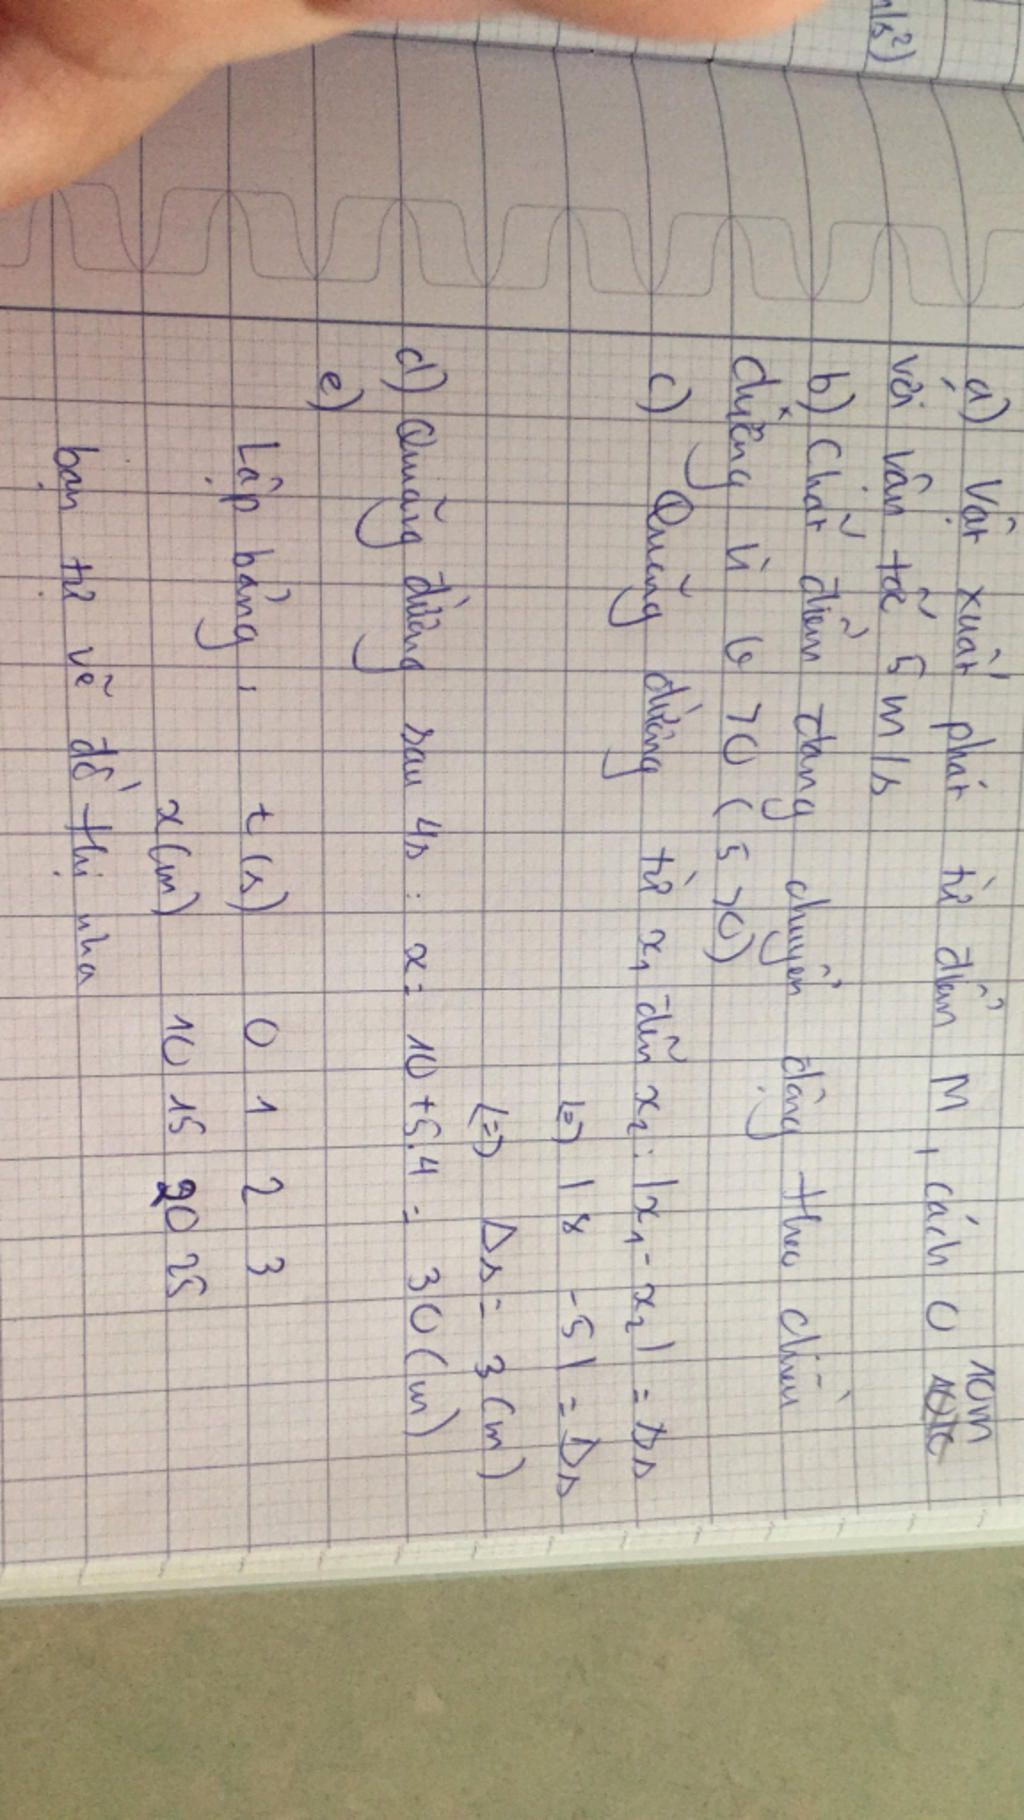 m/s²)
a) Vật xuất phát từ điểm M, cách O 10m
với vận tốc 5 m/s
b) Chất điểm đang chuyển động theo chiều
dương vì v > 0 (5 > 0)
c) Quãng đường từ x₁ đến x₂: |x₁ - x₂| = Δs
(=) | 8 - 5 | = Δs
(=) Δs = 3 (m)
d) Quãng đường sau 4s : x = 10 + 5.4 = 30 (m)
e)
Lập bảng : t (s) 0 1 2 3
x (m) 10 15 20 25
bạn tự vẽ đồ thị nha